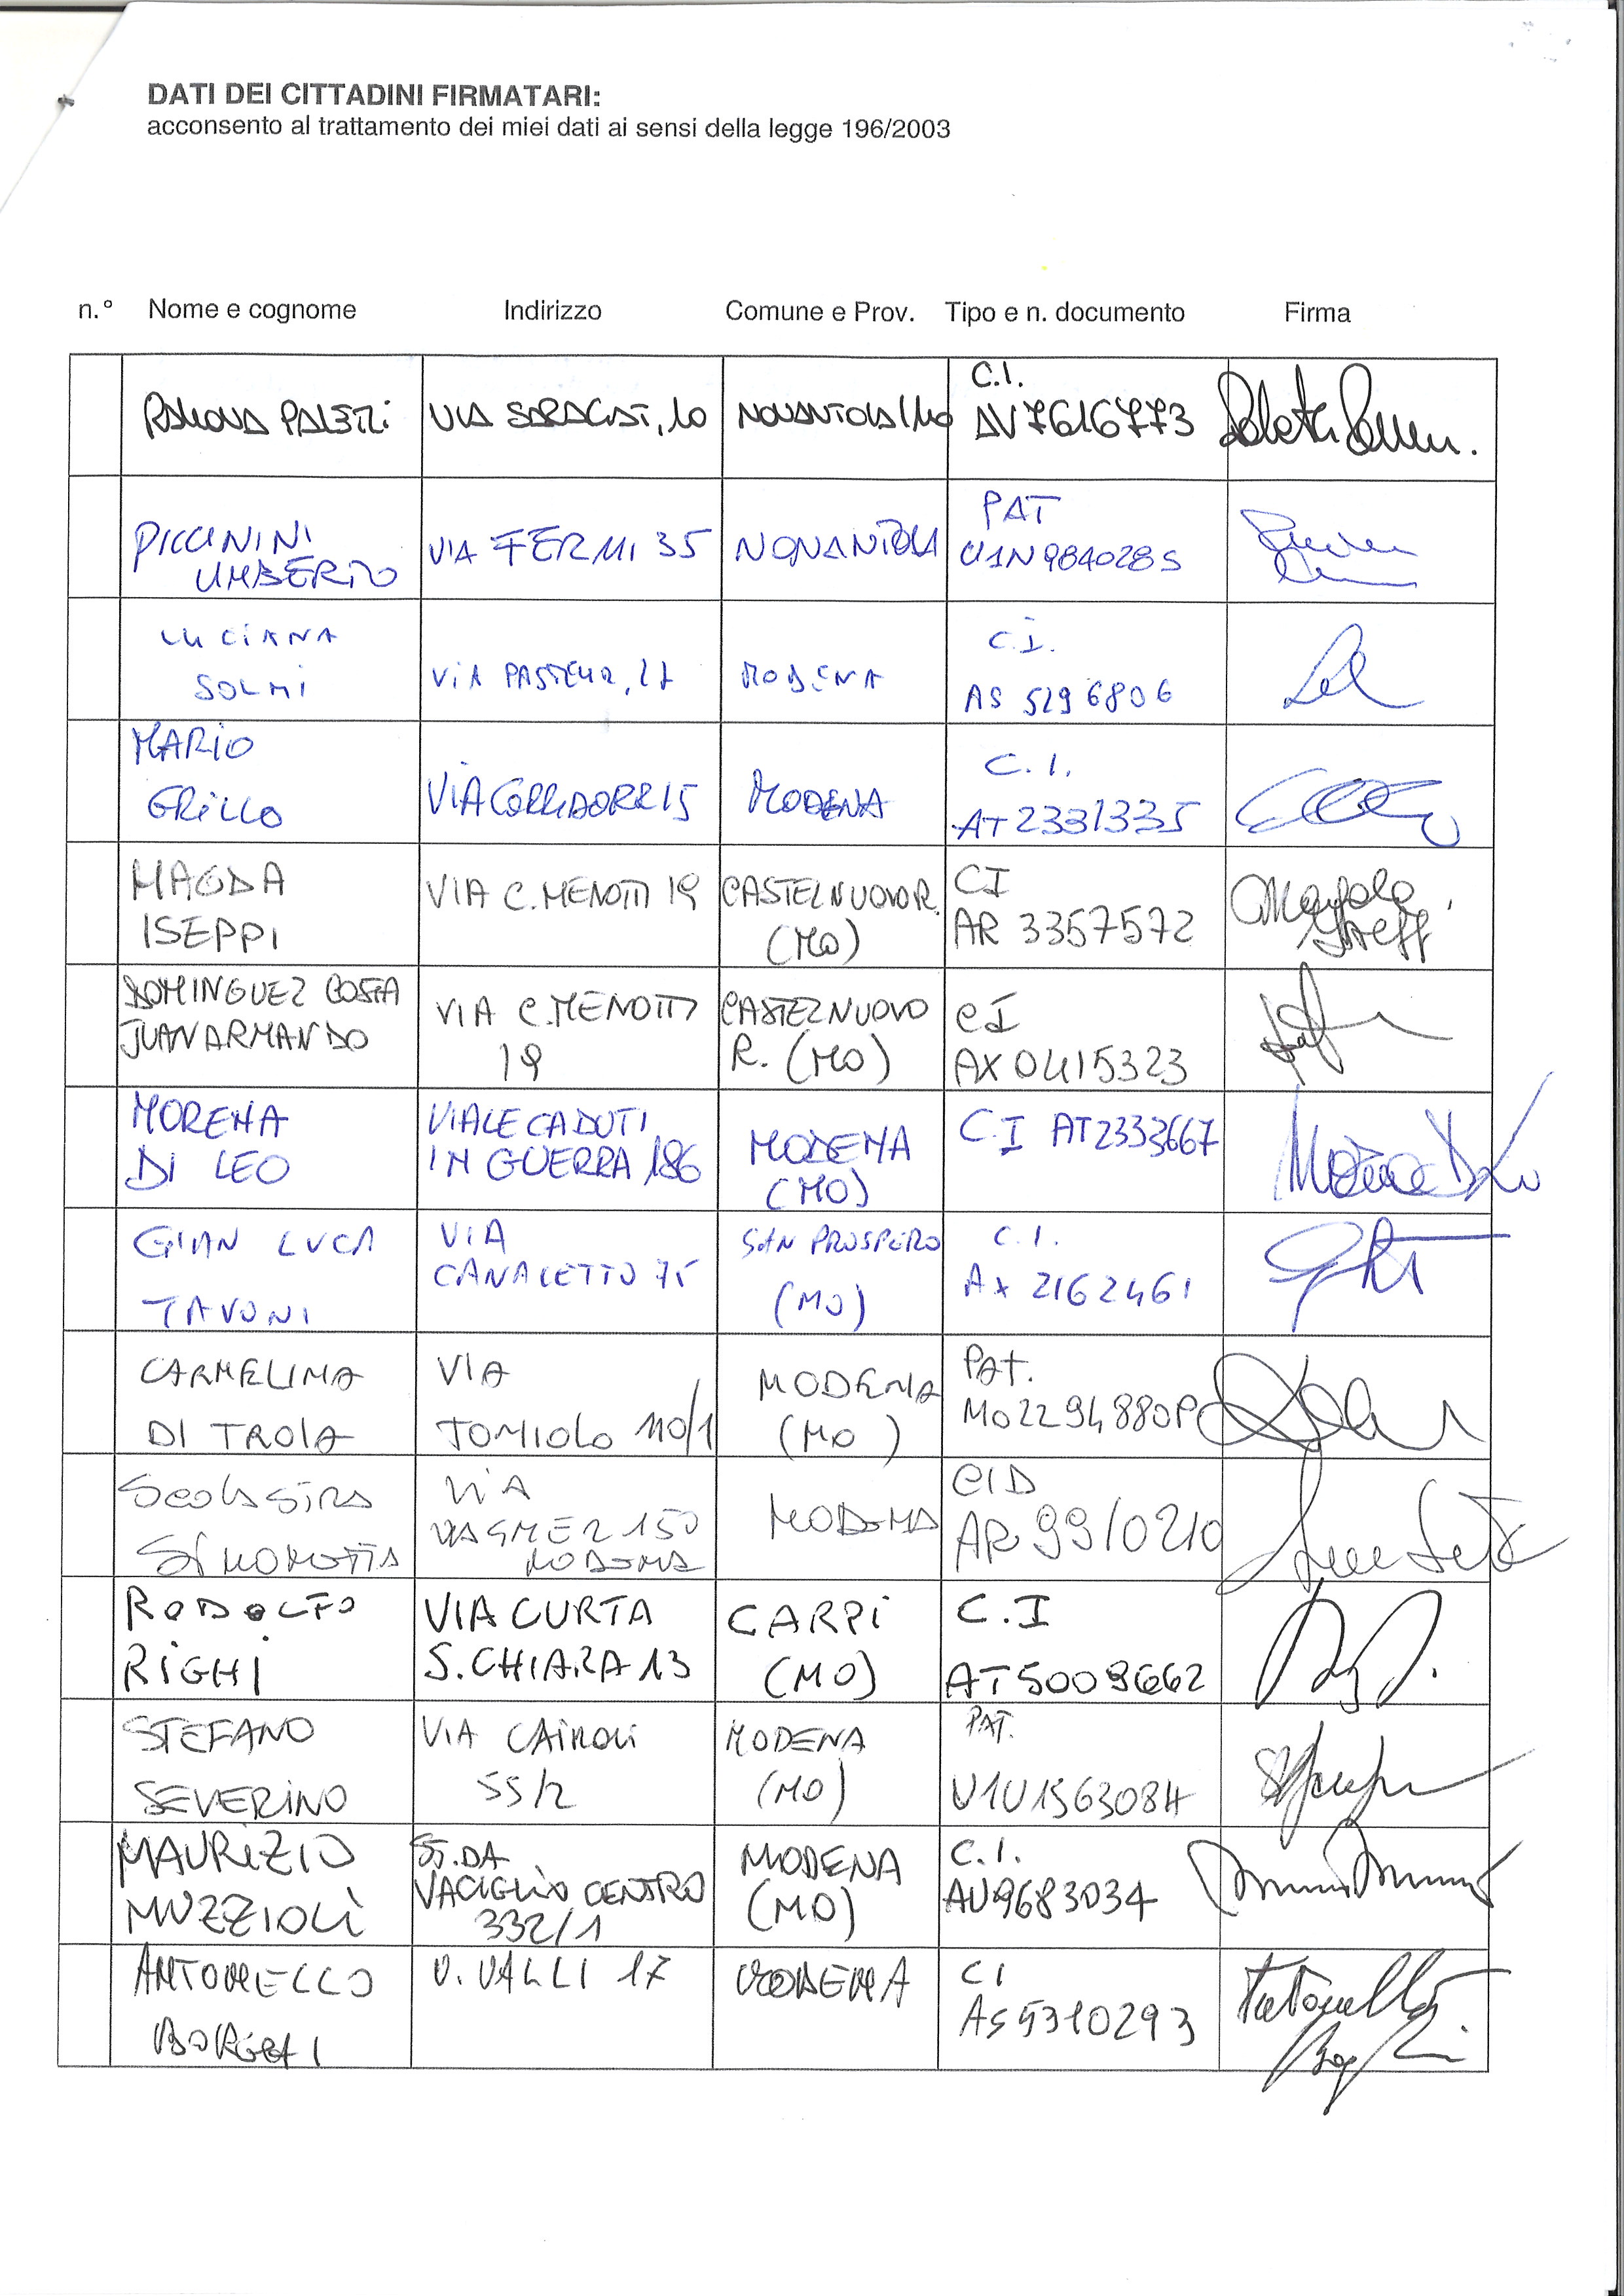 DATI DEI CITTADINI FIRMATARI:
acconsento al trattamento dei miei dati ai sensi della legge 196/2003
n.° Nome e cognome Indirizzo Comune e Prov. Tipo e n. documento Firma
C.I.
RAMONA PALETTI VIA SARAGAT, 10 NONANTOLA (MO AV7616773
PAT
PICCININI VIA FERMI 35 NONANTOLA U1N984028S
UMBERTO
LUCIANA C.I.
SOLMI VIA PASTEUR, 27 MODENA AS 5296806
MARIO C.I.
GRILLO VIA 15 MODENA AT2331335
MAGDA VIA C.MENOTTI 19 CASTELNUOVO R. CI Magda
ISEPPI (MO) AR 3357572 Iseppi
DOMINGUEZ COSTA VIA C.MENOTTI CASTELNUOVO CI
JUAN ARMANDO 19 R. (MO) AX0415323
MORENA VIALE CADUTI MODENA C.I AT2333667
DI LEO IN GUERRA,186 (MO)
GIAN LUCA VIA SAN PROSPERO C.I.
CANALETTO 75 AX 2162461
TAVONI (MO)
CARMELINA VIA MODENA PAT.
DI TROIA TOMIOLO 110/1 (MO) MO2294880P
VIA MODENA CID
WAGNER 150 AR 99/0210
MODENA
RODOLFO VIA CURTA CARPI C.I
RIGHI S.CHIARA 13 (MO) AT5009662
STEFANO VIA CAIROLI MODENA PAT.
SEVERINO 55/2 (MO) U1U1563084H
MAURIZIO ST.DA MODENA C.I.
MUZZIOLI VACIGLIO CENTRO (MO) AU9683034
332/1
ANTONELLO V. VALLI 17 MODENA CI Antonello
BORGHI AS5310293 Borghi